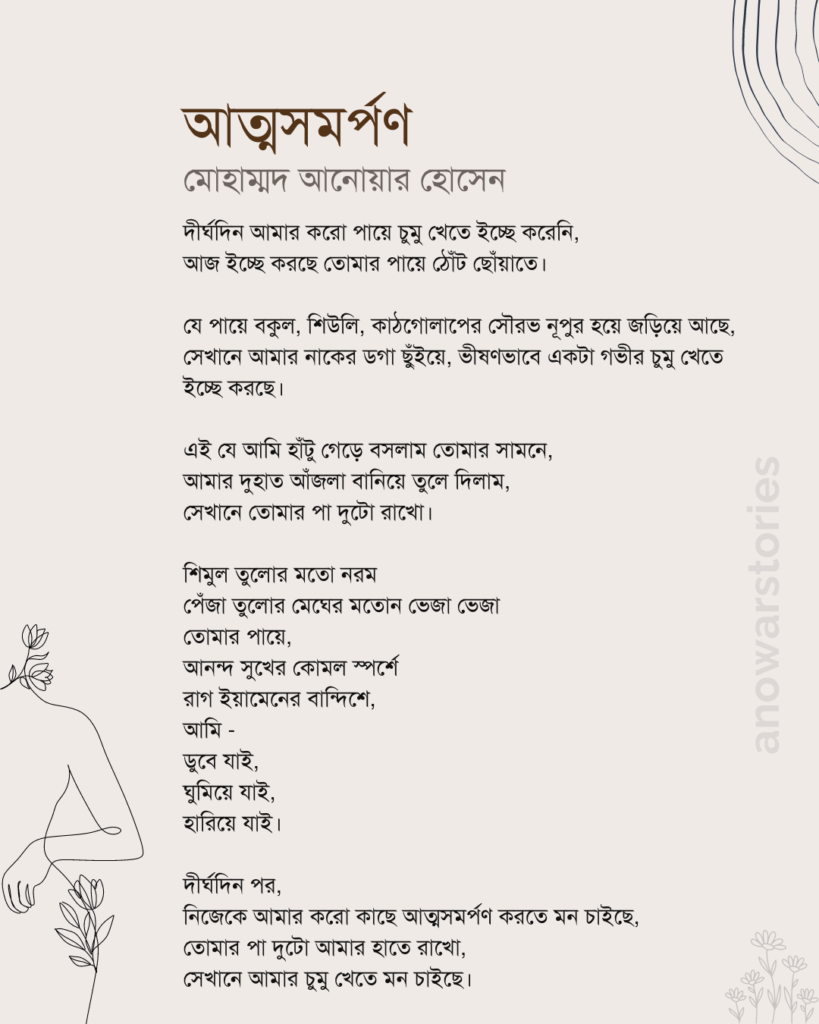 আত্মসমর্পণ
মোহাম্মদ আনোয়ার হোসেন
দীর্ঘদিন আমার করো পায়ে চুমু খেতে ইচ্ছে করেনি,
আজ ইচ্ছে করছে তোমার পায়ে ঠোঁট ছোঁয়াতে।
যে পায়ে বকুল, শিউলি, কাঠগোলাপের সৌরভ নূপুর হয়ে জড়িয়ে আছে,
সেখানে আমার নাকের ডগা ছুঁইয়ে, ভীষণভাবে একটা গভীর চুমু খেতে
ইচ্ছে করছে।
এই যে আমি হাঁটু গেড়ে বসলাম তোমার সামনে,
আমার দুহাত আঁজলা বানিয়ে তুলে দিলাম,
সেখানে তোমার পা দুটো রাখো।
শিমুল তুলোর মতো নরম
পেঁজা তুলোর মেঘের মতোন ভেজা ভেজা
তোমার পায়ে,
আনন্দ সুখের কোমল স্পর্শে
রাগ ইয়ামেনের বান্দিশে,
আমি -
ডুবে যাই,
ঘুমিয়ে যাই,
হারিয়ে যাই।
দীর্ঘদিন পর,
নিজেকে আমার করো কাছে আত্মসমর্পণ করতে মন চাইছে,
তোমার পা দুটো আমার হাতে রাখো,
সেখানে আমার চুমু খেতে মন চাইছে।
anowarstories